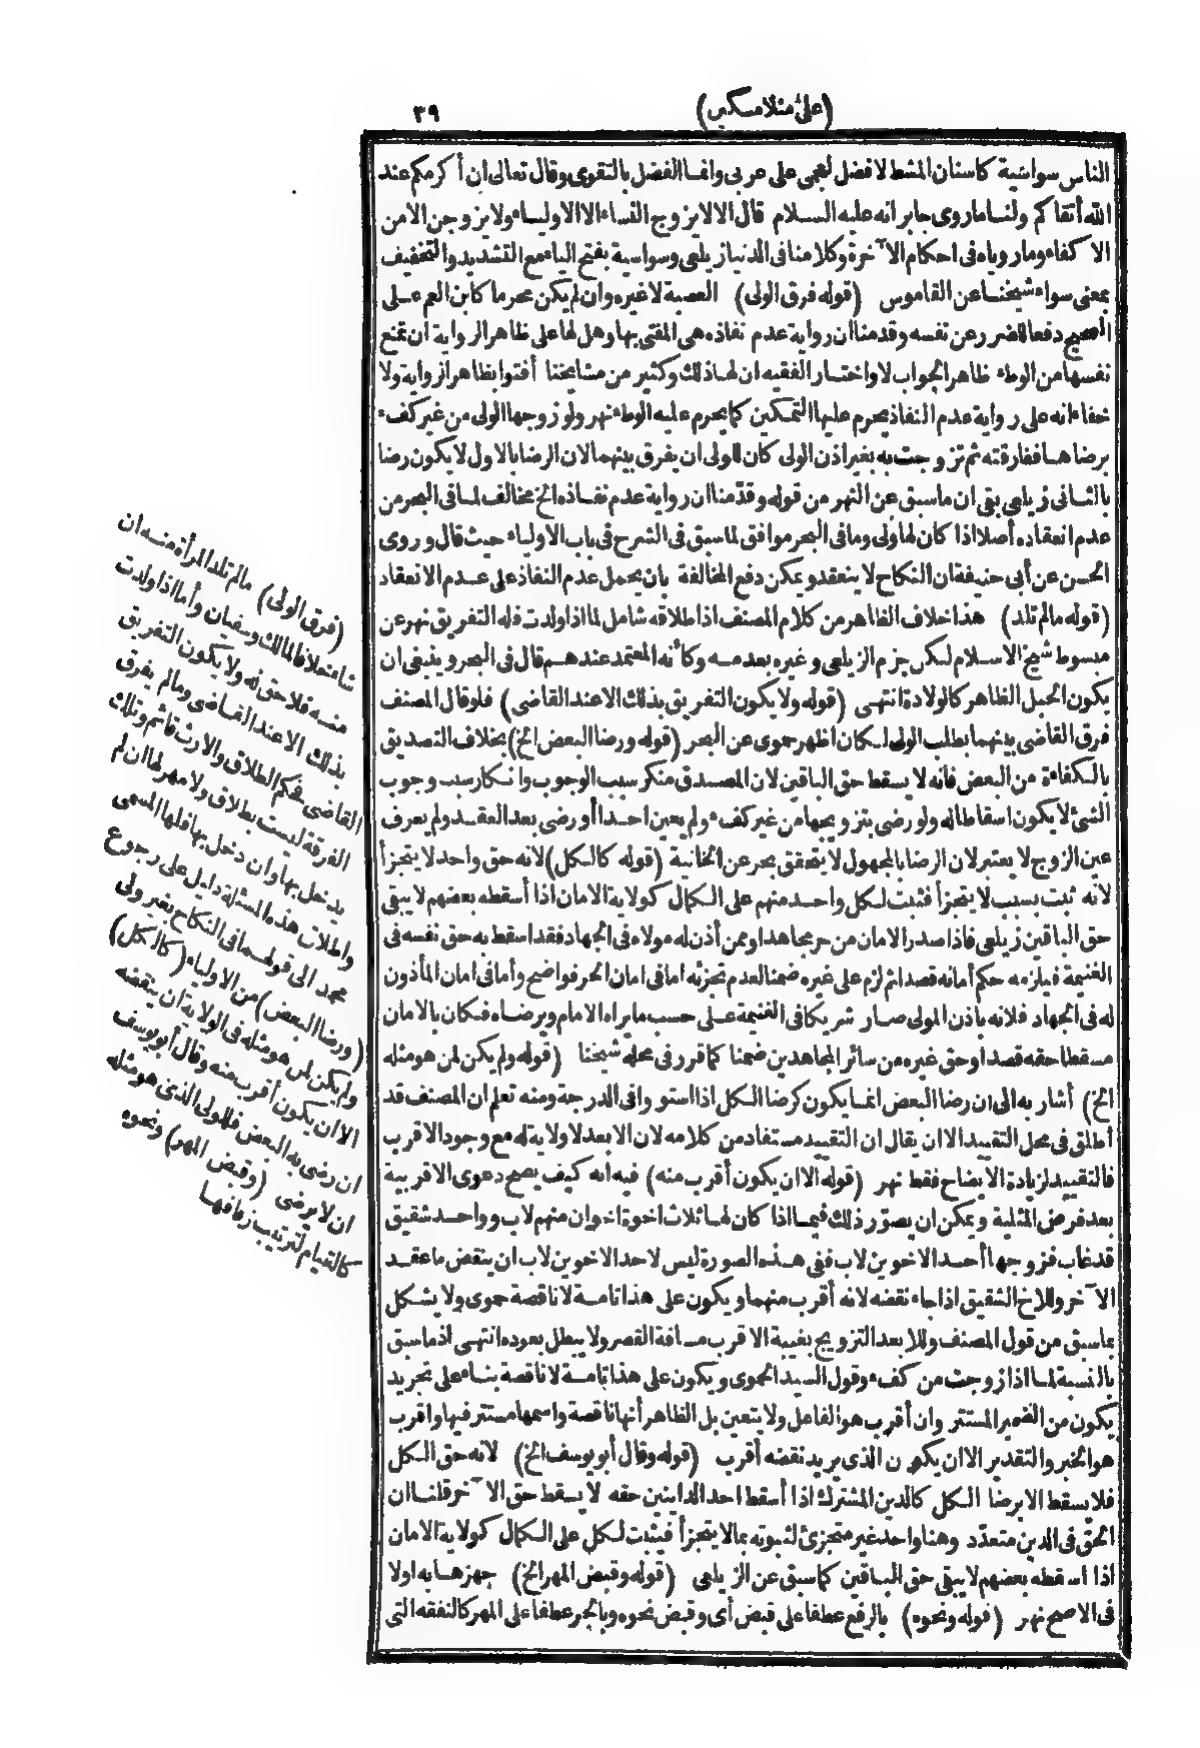 (على منلا مسكين)
٣٩
الناس سواسية كاسنان المشط لا فضل لعجمى على عربى وانما الفضل بالتقوى وقال تعالى ان أكرمكم عند
الله أتقاكم ولنا ما روى جابر انه عليه السلام قال الا لا يزوج النساء الا الاولياء ولا يزوجن الا من
الا كفاء وما رويناه فى احكام الآخرة وكلامنا فى الدنيا زيلعى وسواسية بفتح الياء مع التشديد والتخفيف
بمعنى سواء شيخنا عن القاموس (قوله فرق الولى) العصبة لا غيره وان لم يكن محرما كابن العم على
الصحيح دفعا للضرر عن نفسه وقدمنا ان رواية عدم نفاذه هى المفتى بها وهل لها على ظاهر الرواية ان تمنع
نفسها من الوطء ظاهر الجواب لا واختار الفقيه ان لها ذلك وكثير من مشايخنا أفتوا بظاهر الرواية ولا
خفاء انه على رواية عدم النفاذ يحرم عليها التمكين كما يحرم عليه الوطء نهر ولو زوجها الولى من غير كفء
برضاها ففارقته ثم تزوجت به بغير اذن الولى كان للولى ان يفرق بينهما لان الرضا بالاول لا يكون رضا
بالثانى زيلعى بقى ان ما سبق عن النهر من قوله وقدمنا ان رواية عدم نفاذه الخ مخالف لما فى البحر من
عدم انعقاده أصلا اذا كان لها ولى وما فى البحر موافق لما سبق فى الشرح فى باب الاولياء حيث قال وروى
الحسن عن أبى حنيفة ان النكاح لا ينعقد ويمكن دفع المخالفة بان يحمل عدم النفاذ على عدم الانعقاد
(قوله ما لم تلد) هذا خلاف الظاهر من كلام المصنف اذ اطلاقه شامل لما اذا ولدت فله التفريق نهر عن
مبسوط شيخ الاسلام لكن جزم الزيلعى وغيره بعدمه وكأنه المعتمد عندهم قال فى البحر وينبغى ان
يكون الحبل الظاهر كالولادة انتهى (قوله ولا يكون التفريق بذلك الا عند القاضى) فلو قال المصنف
فرق القاضى بينهما بطلب الولى لكان اظهر حموى عن البحر (قوله ورضا البعض الخ) بخلاف التصديق
بالكفاءة من البعض فانه لا يسقط حق الباقين لان المصدق منكر سبب الوجوب وانكار سبب وجوب
الشئ لا يكون اسقاطا له ولو رضى بتزويجها من غير كفء ولم يعين احدا أو رضى بعد العقد ولم يعرف
عين الزوج لا يعتبر لان الرضا بالمجهول لا يتحقق بحر عن الخانية (قوله كالكل) لانه حق واحد لا يتجزأ
لانه ثبت بسبب لا يتجزأ فثبت لكل واحد منهم على الكمال كولاية الامان اذا أسقطه بعضهم لا يبقى
حق الباقين زيلعى فاذا صدر الامان من حر مجاهد او ممن أذن له مولاه فى الجهاد فقد اسقط به حق نفسه فى
الغنيمة فيلزمه حكم أمانه قصدا ثم لزم على غيره ضمنا لعدم تجزئه اما فى امان الحر فواضح وأما فى امان المأذون
له فى الجهاد فلانه باذن المولى صار شريكا فى الغنيمة على حسب ما يراه الامام ويرضاه فكان بالامان
مسقطا حقه قصدا وحق غيره من سائر المجاهدين ضمنا كما قرر فى محله شيخنا (قوله ولم يكن لمن هو مثله
الخ) أشار به الى ان رضا البعض انما يكون كرضا الكل اذا استووا فى الدرجة ومنه تعلم ان المصنف قد
أطلق فى محل التقييد الا ان يقال ان التقييد مستفاد من كلامه لان الابعد لا ولاية له مع وجود الاقرب
فالتقييد لزيادة الايضاح فقط نهر (قوله الا ان يكون أقرب منه) فيه انه كيف يصح دعوى الاقربية
بعد فرض المثلية ويمكن ان يصور ذلك فيما اذا كان لها ثلاث اخوة اخوان منهم لاب وواحد شقيق
قد غاب فزوجها أحد الاخوين لاب ففى هذه الصورة ليس لاحد الاخوين لاب ان ينقض ما عقد
الآخر وللاخ الشقيق اذا جاء نقضه لانه أقرب منهما ويكون على هذا تامة لا ناقصة حموى ولا يشكل
بما سبق من قول المصنف وللابعد التزويج بغيبة الاقرب مسافة القصر ولا يبطل بعوده انتهى اذ ما سبق
بالنسبة لما اذا زوجت من كفء وقول السيد الحموى ويكون على هذا تامة لا ناقصة بناء على تجريد
يكون من الضمير المستتر وان أقرب هو الفاعل ولا يتعين بل الظاهر أنها ناقصة واسمها مستتر فيها واقرب
هو الخبر والتقدير الا ان يكون الذى يريد نقضه أقرب (قوله وقال أبو يوسف الخ) لانه حق الكل
فلا يسقط الا برضا الكل كالدين المشترك اذا أسقط احد الدائنين حقه لا يسقط حق الآخر قلنا ان
الحق فى الدين متعدد وهنا واحد غير متجزئ لثبوته بما لا يتجزأ فيثبت لكل على الكمال كولاية الامان
اذا اسقطه بعضهم لا يبقى حق الباقين كما سبق عن الزيلعى (قوله وقبض المهر الخ) جهزها به اولا
فى الاصح نهر (قوله ونحوه) بالرفع عطفا على قبض أى وقبض نحوه وبالجر عطفا على المهر كالنفقة التى
(فرق الولى) ما لم تلد المرأة منه ان
شاء خلافا لمالك وسفيان وأما اذا ولدت
منه فلا حق له ولا يكون التفريق
بذلك الا عند القاضى وما لم يفرق
القاضى فحكم الطلاق والارث قائم وتلك
الفرقة ليست بطلاق ولا مهر لها ان لم
يدخل بها وان دخل بها فلها المسمى
واطلاق هذه المسئلة دليل على رجوع
محمد الى قولهما فى النكاح بغير ولى
(ورضا البعض) من الاولياء (كالكل)
ولم يكن لمن هو مثله فى الولاية ان ينقضه
الا ان يكون أقرب منه وقال أبو يوسف
ان رضى به البعض فللولى الذى هو مثله
ان لا يرضى (وقبض المهر) ونحوه
كالقيام لترتيب زفافها